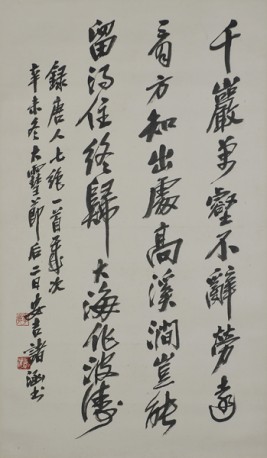 千巖万壑不辭勞遠
看方知出處高溪澗豈能
留得住終歸大海作波濤
錄唐人七絕一首歲次
辛未冬大雪節后二日安吉諸涵書